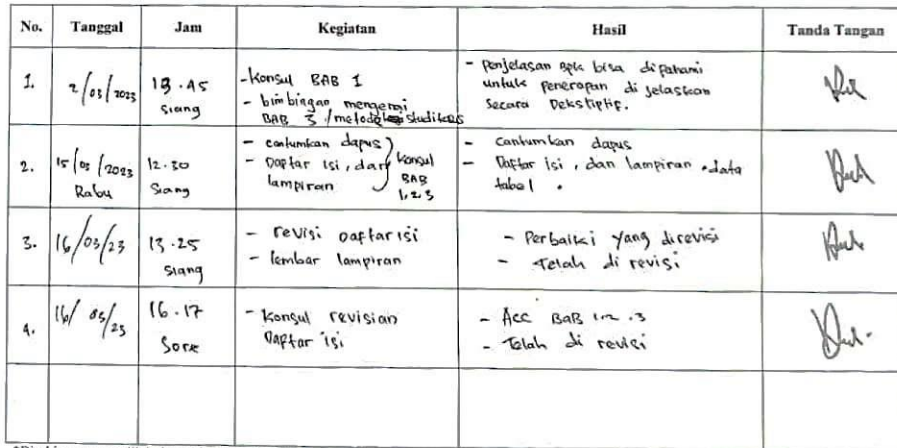 No. Tanggal Jam Kegiatan Hasil Tanda Tangan
1. 2/03/2023 13.45 siang
- Konsul BAB 1
- bimbingan mengenai
BAB 3 /metodologi studi kasus
- penjelasan Bpk bisa dipahami
untuk penerapan di jelaskan
secara Dekstiptif.
2. 15/03/2023 Rabu 12.30 Siang
- cantumkan dapus
- Daftar isi, dan
lampiran
Konsul
BAB
1,2,3
- Cantumkan dapus
- Daftar isi, dan lampiran . data
tabel .
3. 16/03/23 13.25 Siang
- revisi Daftar isi
- lembar lampiran
- Perbaiki yang direvisi
- Telah di revisi
4. 16/ 03/23 16.17 Sore
- Konsul revisian
Daftar isi
- Acc BAB 1.2.3
- Telah di revisi